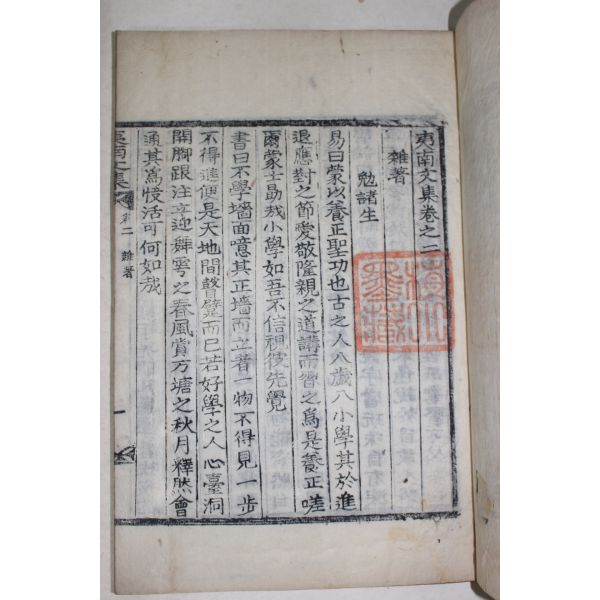 夷南文集卷之二
雜著
勉諸生
易曰蒙以養正聖功也古之人八歲入小學其於進
退應對之節愛敬隆親之道講而習之爲是養正嗟
爾蒙士勖哉小學如吾不信視彼先覺
書曰不學墻面噫其正墻而立者一物不得見一步
不得進便是天地間瞽躄而已若好學之人心臺洞
開脚跟注立迎舞雩之春風賞方塘之秋月釋然會
通其爲快活可何如哉
夷南文集 卷二 雜著 一